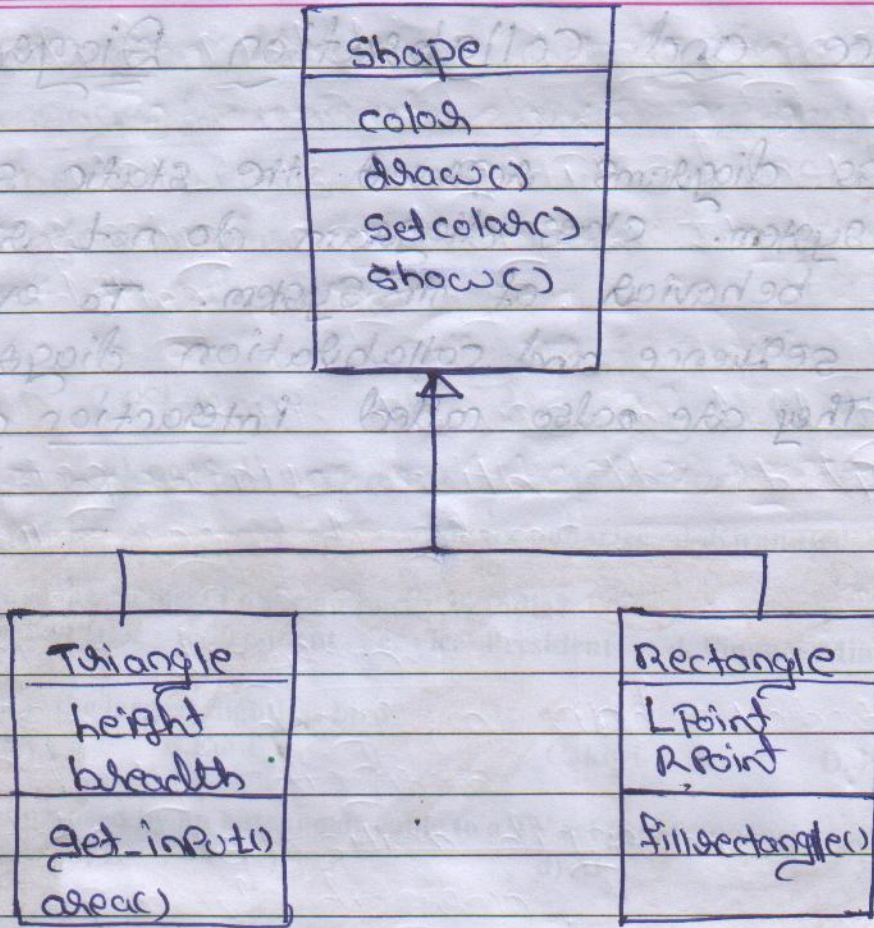 Shape
color
draw()
Setcolor()
Show()
Triangle
height
breadth
get_input()
area()
Rectangle
LPoint
RPoint
fillrectangle()